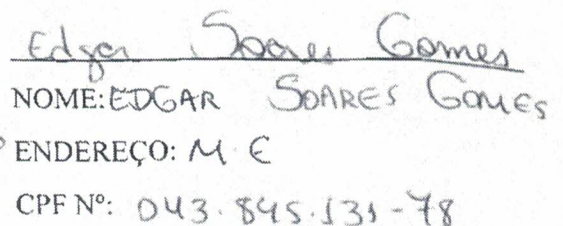 Edgar Soares Gomes
NOME: EDGAR SOARES GOMES
ENDEREÇO: M. E
CPF Nº: 043.845.131-78